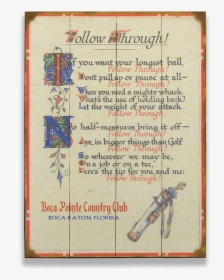 Follow Through!
If you want your longest ball,
Follow Through!
Don't pull up or pause at all—
Follow Through!
When you need a mighty whack,
What's the use of holding back?
Let the weight of your attack
Follow Through!
No half-measures bring it off—
Follow Through!
Aye, in bigger things than Golf
Follow Through!
So wherever we may be,
On a job or on a tee,
Here's the tip for you and me:
Follow Through!
Boca Pointe Country Club
BOCA RATON, FLORIDA